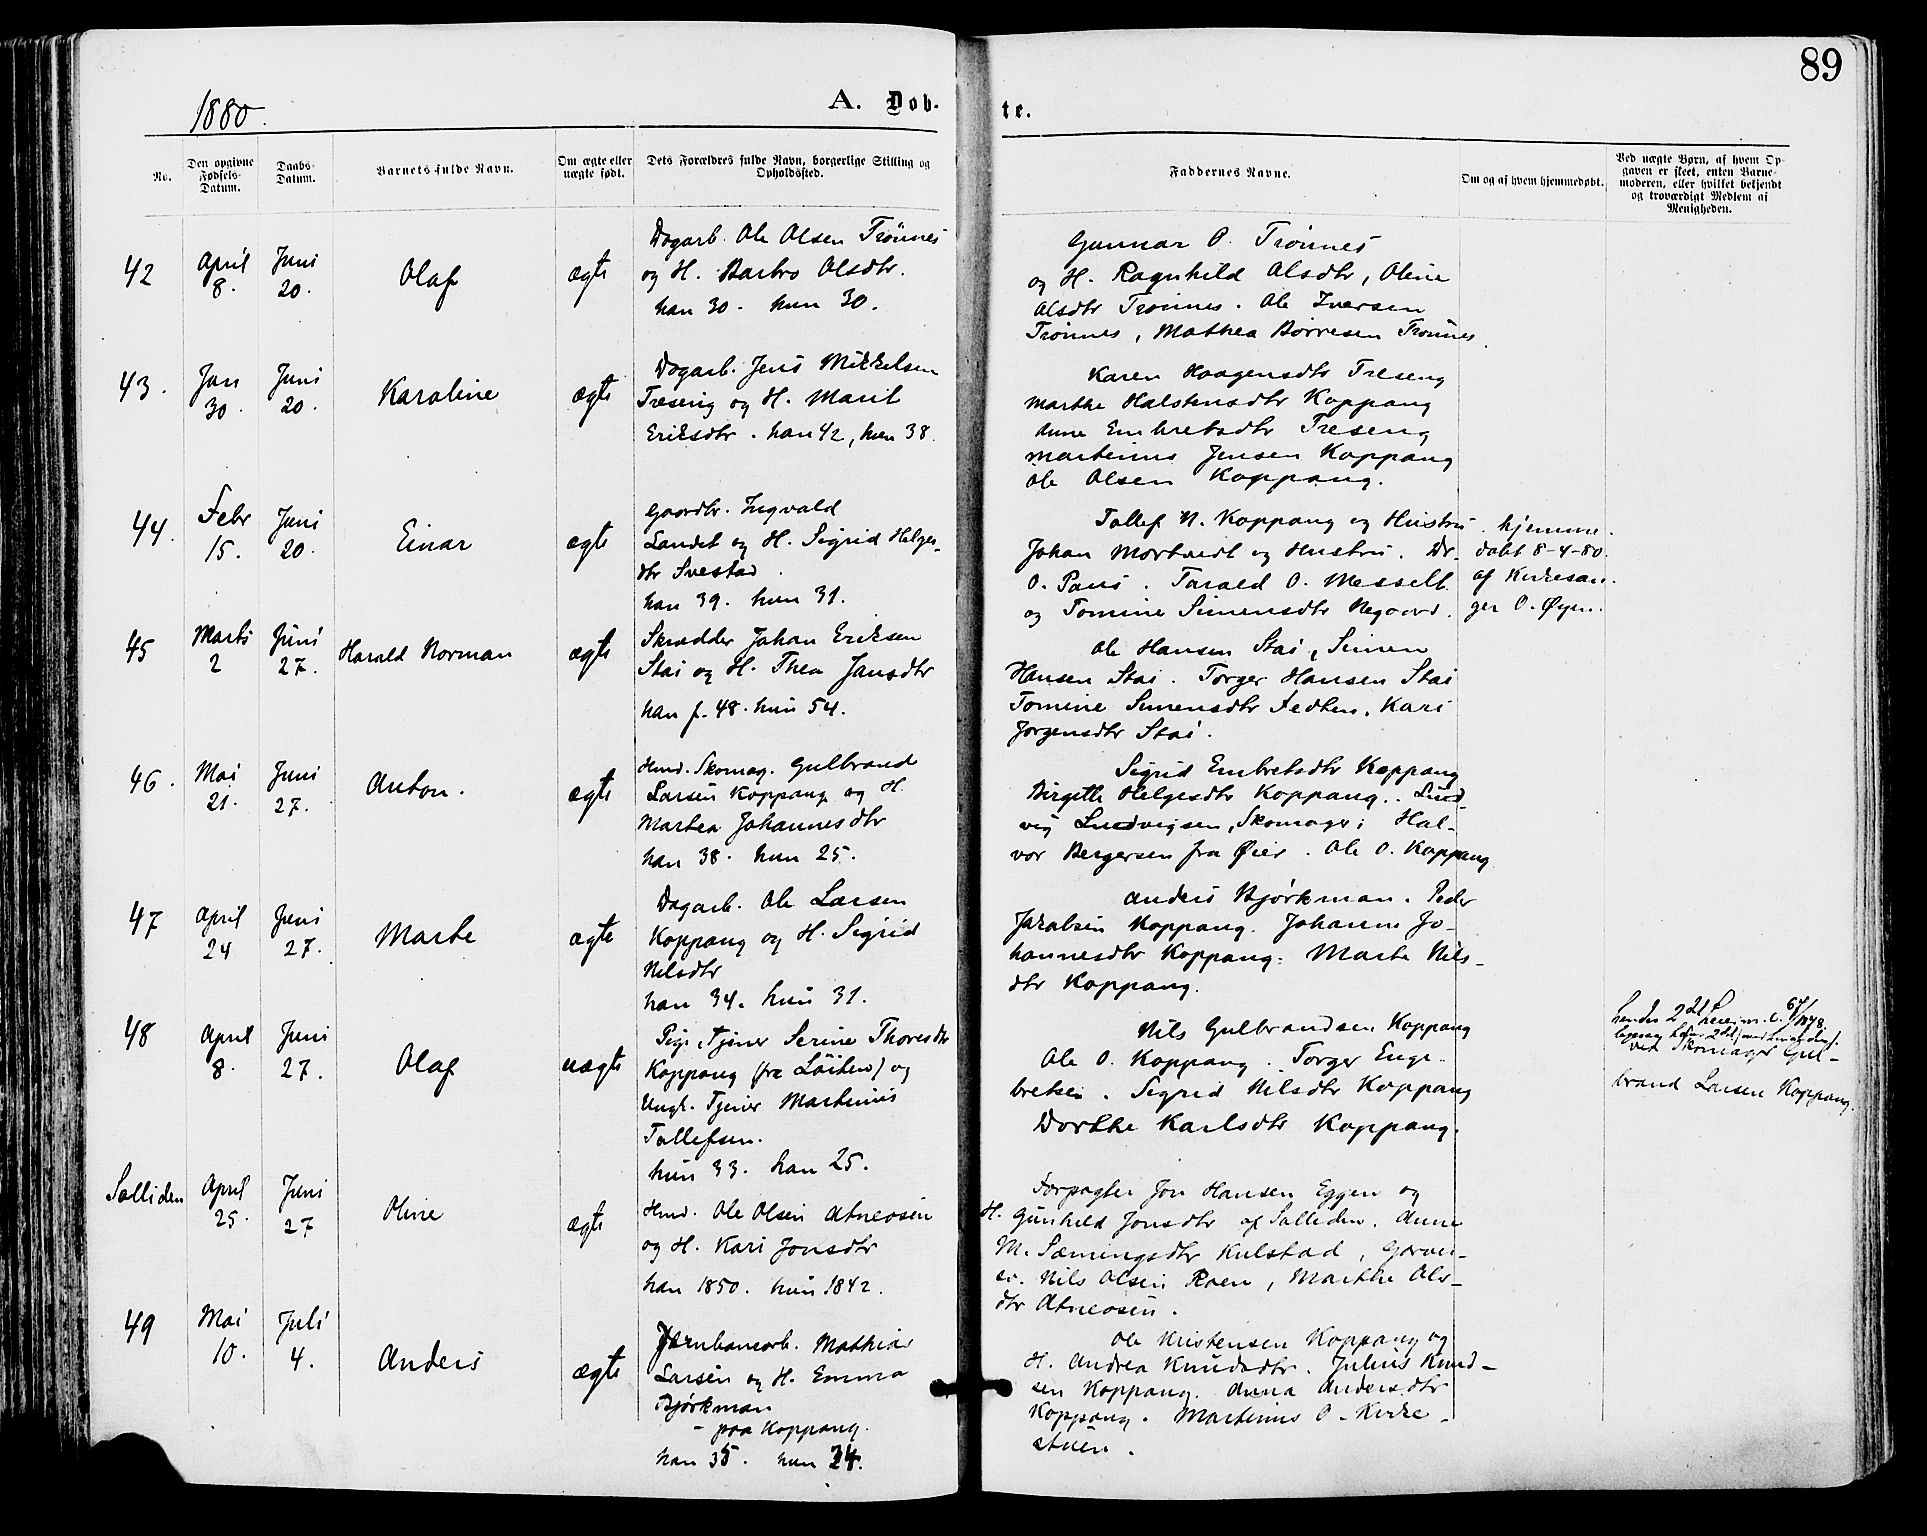 89
1880.
A. Døb-
te.
No.
Den opgivne Fødsels-Datum.
Daabs-Datum.
Barnets fulde Navn.
Om ægte eller uægte født.
Dets Forældres fulde Navn, borgerlige Stilling og Opholdssted.
Faddernes Navne.
Om og af hvem hjemmedøbt.
Ved uægte Børn, af hvem Opgaven er skeet, enten Barnemoderen, eller hvilket bekjendt og troværdigt Medlem af Menigheden.
42 April 8. Juni 20. Olaf ægte
Dagarb. Ole Olsen Trønnes
og H. Barbro Olsdtr.
han 30. hun 30.
Gunnar O. Trønnes
og H. Ragnhild Olsdtr, Oline
Olsdtr Trønnes. Ole Iversen
Trønnes, Mathea Børresen Trønnes.
43. Jan 30. Juni 20. Karoline ægte
Dagarb. Jens Mikkelsen
Træseng og H. Marit
Eriksdtr. han 42, hun 38.
Karen Haagensdtr Treseng
Marthe Halstensdtr Koppang
Anne Embretsdtr Treseng
Martinius Jensen Koppang
Ole Olsen Koppang.
44. Febr 15. Juni 20. Einar ægte
Gaardbr. Ingvald
Landet og H. Sigrid Helges-
dtr Svestad.
han 39. hun 31.
Tollef N. Koppang og Hustru
Johan Mortvedt og Hustru. Dr.
O. Paus. Tarald O. Messelt
og Tomine Simensdtr Negaard.
hjemme-
døbt 8-4-80.
af Kirkesan-
ger O. Øyen.
45 Marts 2 Juni 27. Harald Norman ægte
Skrædder Johan Eriksen
Stai og H. Thea Jansdtr
han f. 48. hun 54.
Ole Hansen Stai, Simen
Hansen Stai. Torger Hansen Stai
Tomine Simensdtr Fedten. Kari
Jørgensdtr Stai.
46. Mai 21. Juni 27. Anton. ægte
Hmd. Skomag. Gulbrand
Larsen Koppang og H.
Martea Johannesdtr
han 38. hun 25.
Sigrid Embretsdtr Koppang
Birgitte Helgesdtr Koppang. Lud-
vig Ludvigsen, Skomager; Hal-
vor Bergersen fra Øier. Ole O. Koppang
47 April 24 Juni 27. Marte ægte
Dagarb. Ole Larsen
Koppang og H. Sigrid
Nilsdtr
han 34. hun 31.
Anders Bjørkman. Peder
Jakobsen Koppang. Johanne Jo-
hannesdtr Koppang. Marte Nils-
dtr Koppang.
48 April 8. Juni 27. Olaf uægte
Pige, Tjener Serine Thoresdtr
Koppang (fra Løiten) og
Ungk. Tjener Martinius
Tollefsen.
hun 33. han 25.
Nils Gulbrandsen Koppang
Ole O. Koppang. Torger Enge-
bretsen. Sigrid Nilsdtr Koppang
Dorthe Karlsdtr Koppang.
hendes 2det
ved Skomager Gul-
brand Larsen Koppang.
Solliden April 25. Juni 27 Oline ægte
Hmd. Ole Olsen Atneosen
og H. Kari Jonsdtr
han 1850. hun 1842.
Forpagter Jon Hansen Eggen og
H. Gunhild Jonsdtr af Solliden. Anne
M. Sæmingsdtr Kulstad, Garver-
sv. Nils Olsen Roen, Marthe Ols-
dtr Atneosen.
49 Mai 10. Juli 4. Anders ægte
Jernbanearb. Mathias
Larsen og H. Emma
Bjørkman
- paa Koppang.
han 35. hun 24.
Ole Kristensen Koppang og
H. Andrea Knudsdtr. Julius Knud-
sen Koppang. Anna Andersdtr
Koppang. Martinius O. Kirke-
stuen.